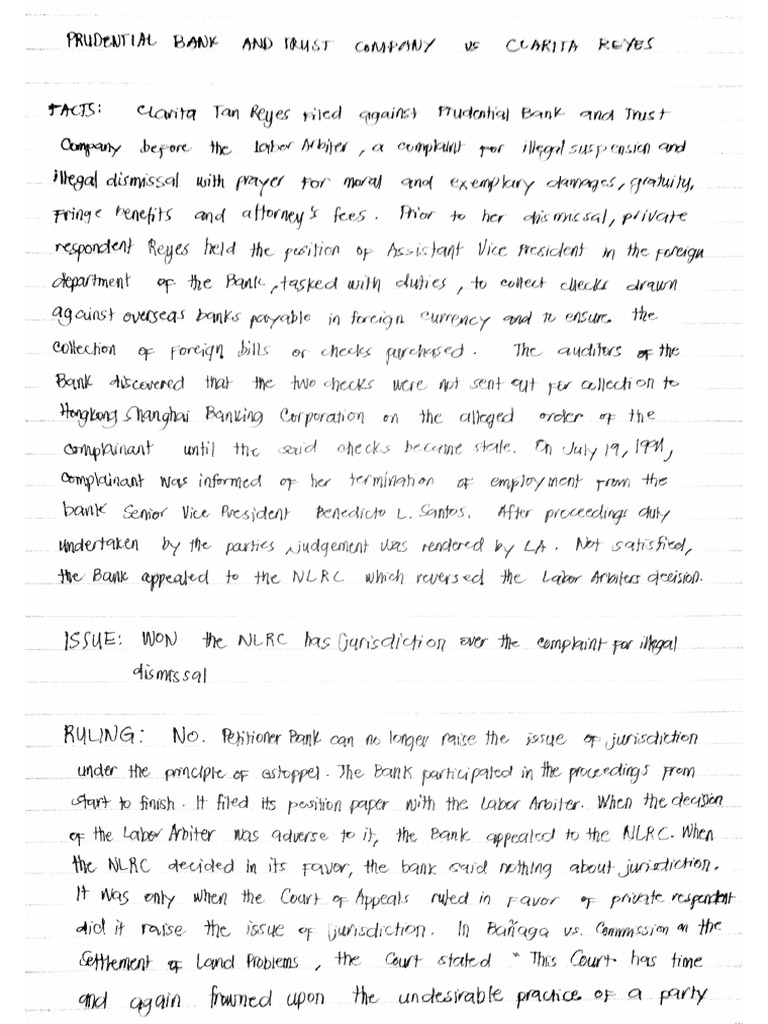 PRUDENTIAL BANK AND TRUST COMPANY vs CLARITA REYES
FACTS: Clarita Tan Reyes filed against Prudential Bank and Trust
Company before the Labor Arbiter, a complaint for illegal suspension and
illegal dismissal with prayer for moral and exemplary damages, gratuity,
Fringe benefits and attorney's fees. Prior to her dismissal, private
respondent Reyes held the position of Assistant Vice President in the foreign
department of the Bank, tasked with duties, to collect checks drawn
against overseas banks payable in foreign currency and to ensure the
collection of foreign bills or checks purchased. The auditors of the
Bank discovered that the two checks were not sent out for collection to
Hongkong Shanghai Banking Corporation on the alleged order of the
complainant until the said checks became stale. On July 19, 1991,
complainant was informed of her termination of employment from the
bank Senior Vice President Benedicto L. Santos. After proceedings duty
undertaken by the parties, judgement was rendered by LA. Not satisfied,
the Bank appealed to the NLRC which reversed the Labor Arbiters decision.
ISSUE: WON the NLRC has jurisdiction over the complaint for illegal
dismissal
RULING: No. Petitioner Bank can no longer raise the issue of jurisdiction
under the principle of estoppel. The Bank participated in the proceedings from
start to finish. It filed its position paper with the Labor Arbiter. When the decision
of the Labor Arbiter was adverse to it, the Bank appealed to the NLRC. When
the NLRC decided in its favor, the bank said nothing about jurisdiction.
It was only when the Court of Appeals ruled in favor of private respondent
did it raise the issue of jurisdiction. In Bañaga vs. Commission on the
Settlement of Land Problems, the Court stated "This Court has time
and again frowned upon the undesirable practice of a party